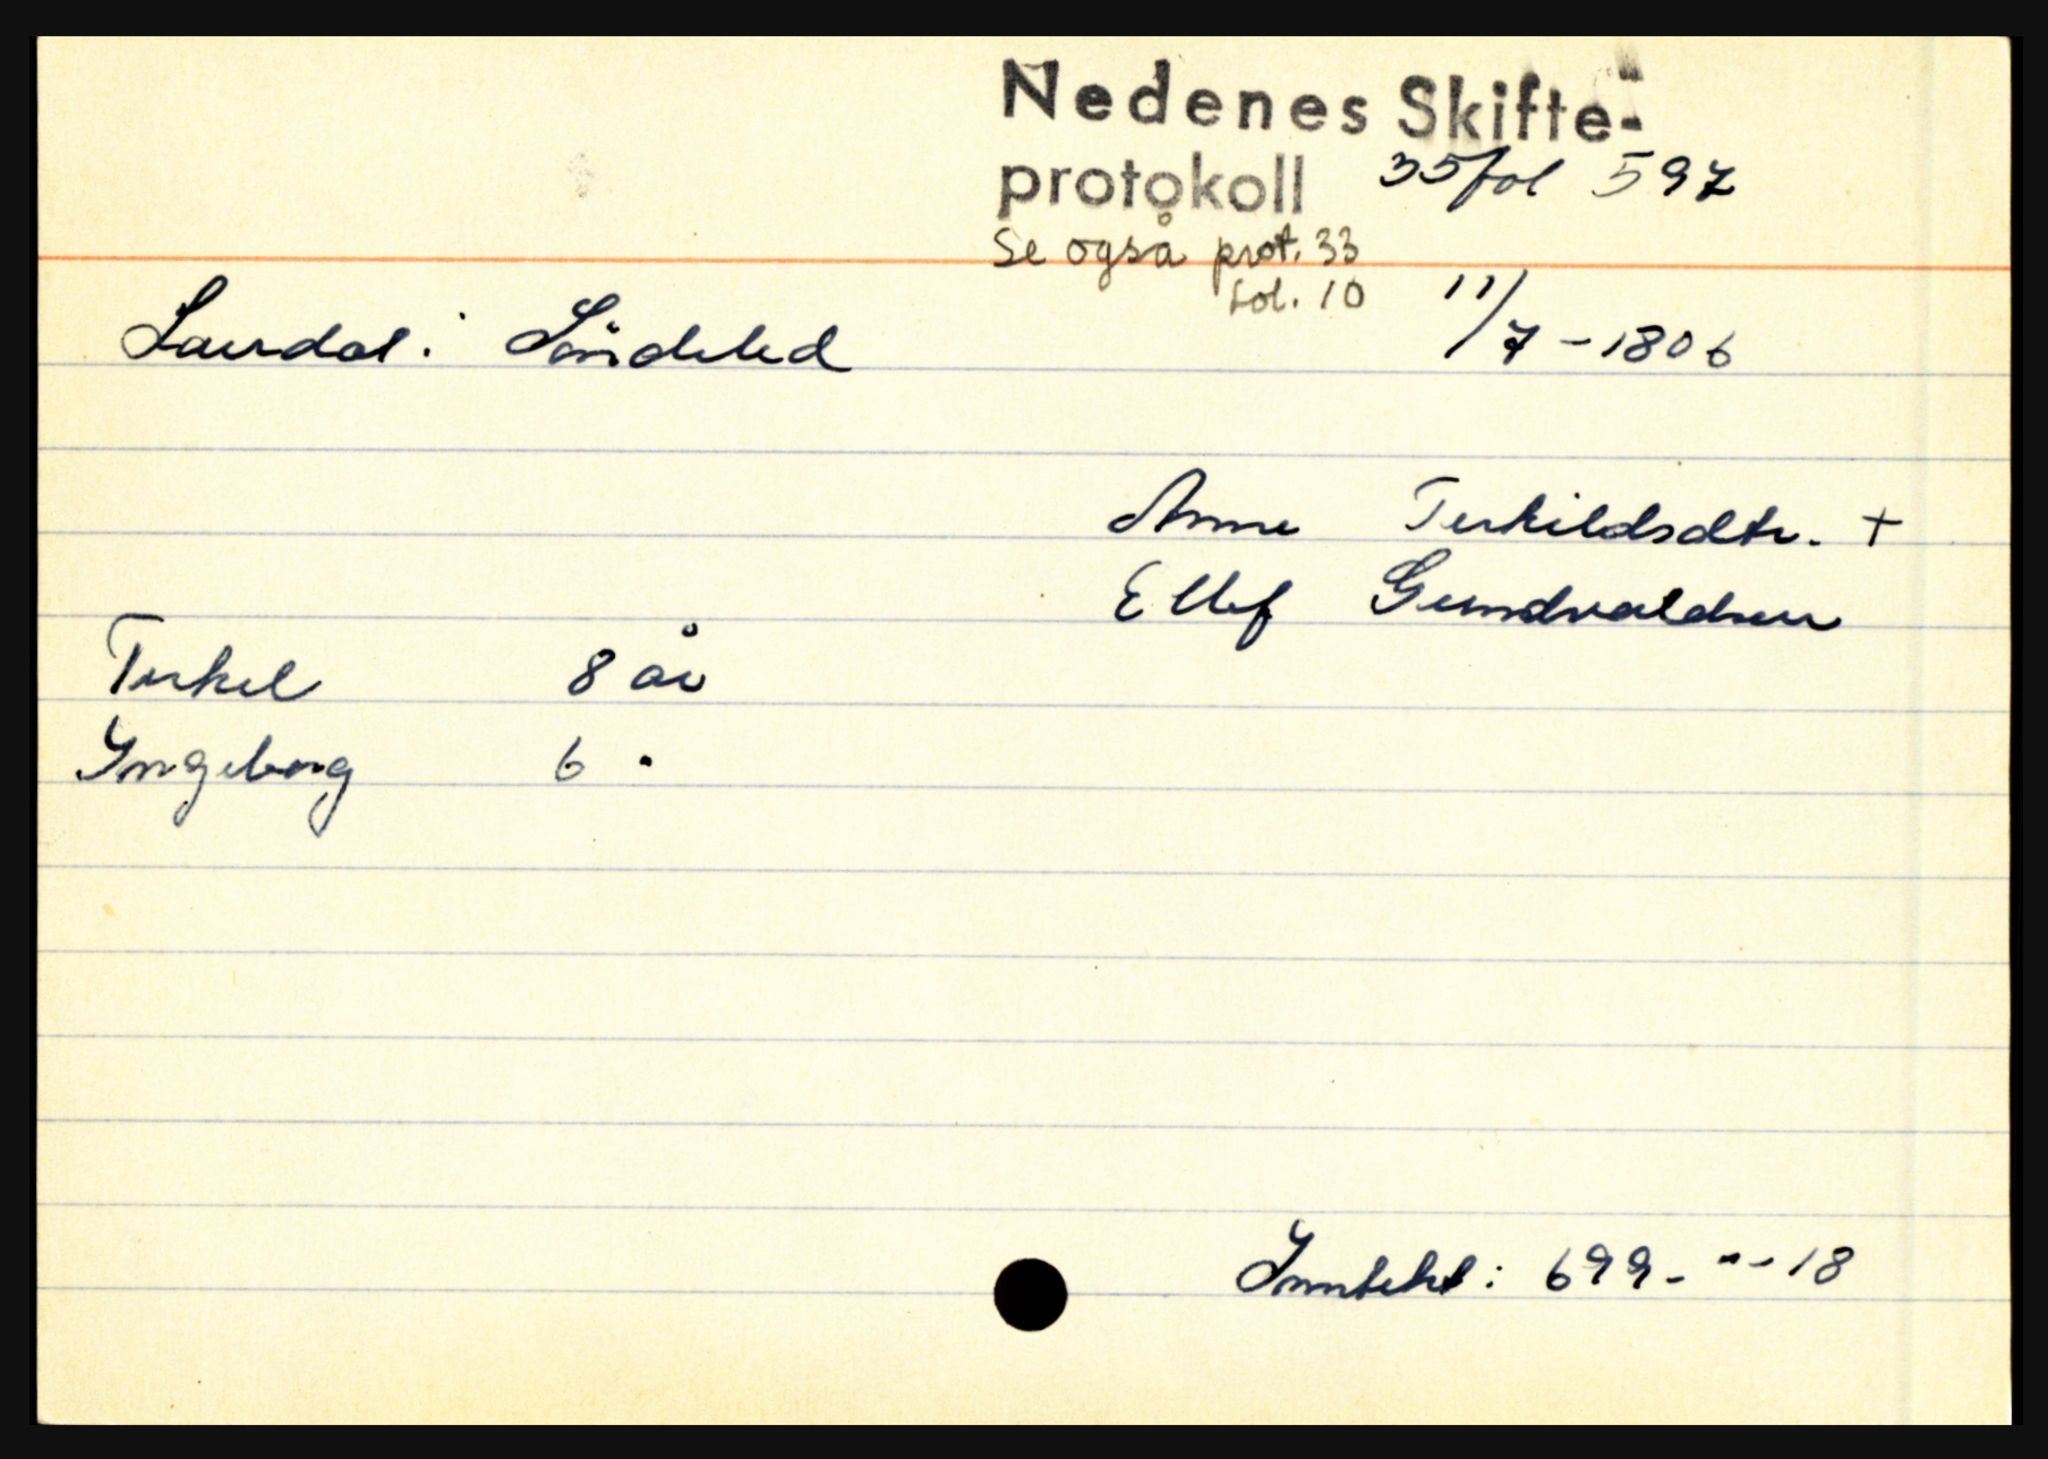 Nedenes Skifte-
protokoll 35 fol 597
Se også prot. 33
fol. 10
11/7 - 1806
Laurdal i Söndeled
Anne Terkildsdtr. +
Ellef Gundvaldsen
Terkel 8 år
Yngeborg 6 "
Inntekt: 699 - " - 18